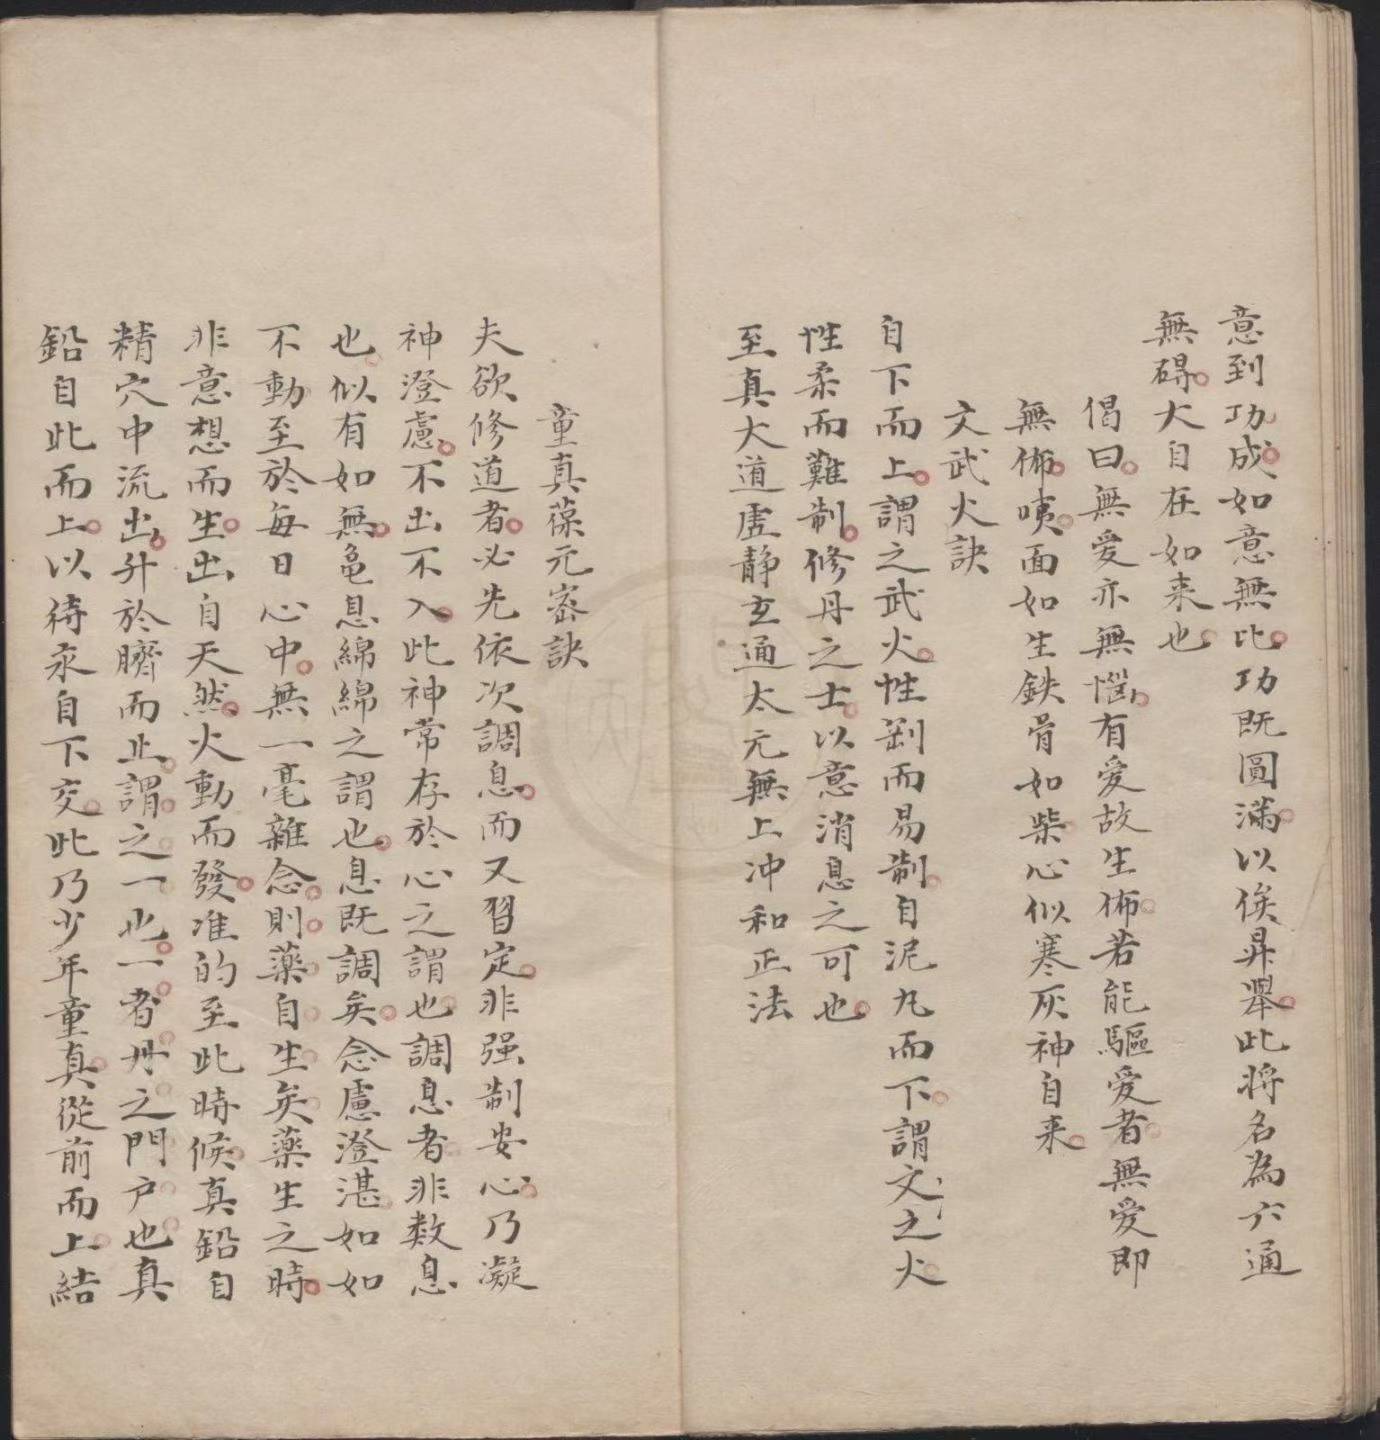 意到功成如意無比功既圓滿以俟昇舉此將名為六通
無碍大自在如来也
偈曰無愛亦無惱有愛故生怖若能驅愛者無愛即
無怖咦面如生鉄骨如柴心似寒灰神自来
文武火訣
自下而上謂之武火性剛而易制自泥丸而下謂文之火
性柔而難制修丹之士以意消息之可也
至真大道虛静玄通太元無上冲和正法
童真葆元宻訣
夫欲修道者必先依次調息而又習定非强制安心乃凝
神澄慮不出不入此神常存於心之謂也調息者非数息
也似有如無龟息綿綿之謂也息既調矣念慮澄湛如如
不動至於每日心中無一毫雜念則藥自生矣藥生之時
非意想而生出自天然火動而發准的至此時候真鉛自
精穴中流出升於臍而止謂之一也一者丹之門户也真
鉛自此而上以待汞自下交此乃少年童真從前而上結